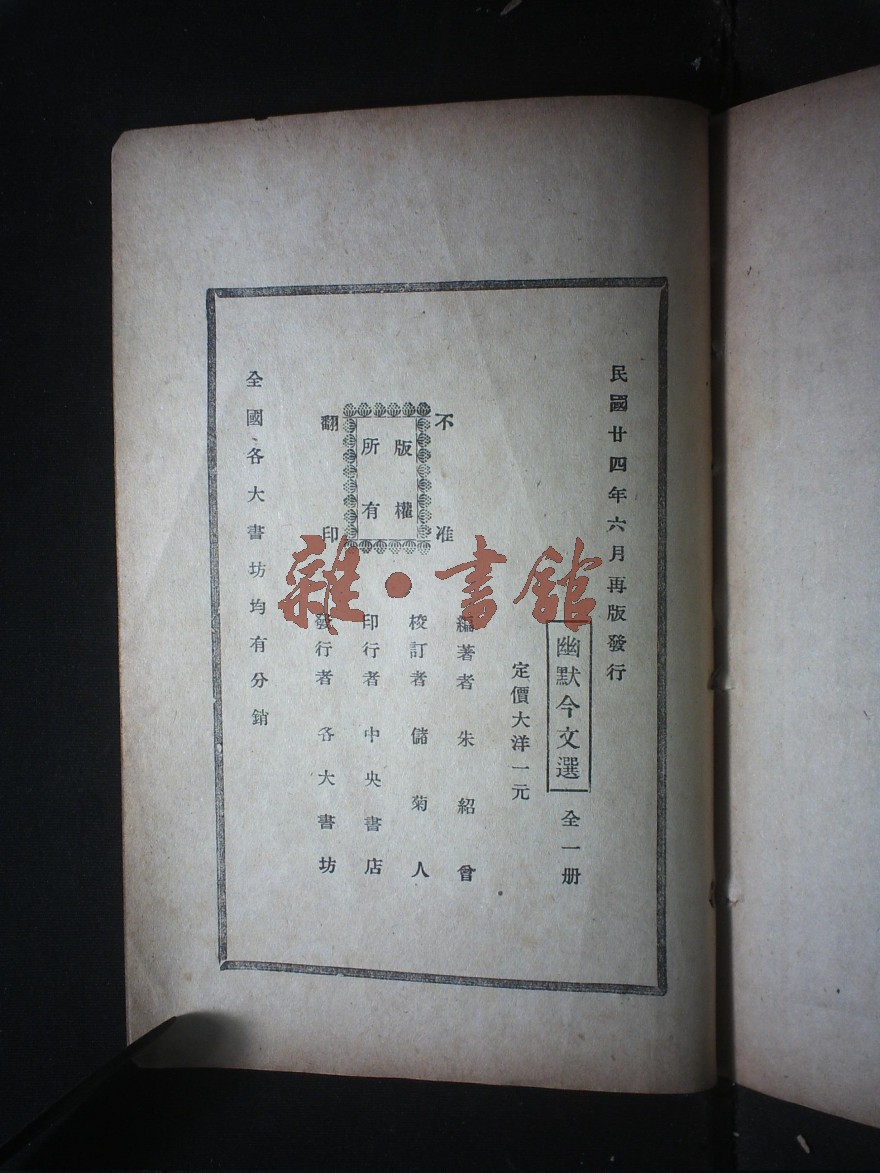 民國廿四年六月再版發行
幽默今文選 全一册
定價大洋一元
編著者 朱紹曾
校訂者 儲菊人
印行者 中央書店
發行者 各大書坊
不准
版權
所有
翻印
全國各大書坊均有分銷
雜·書館